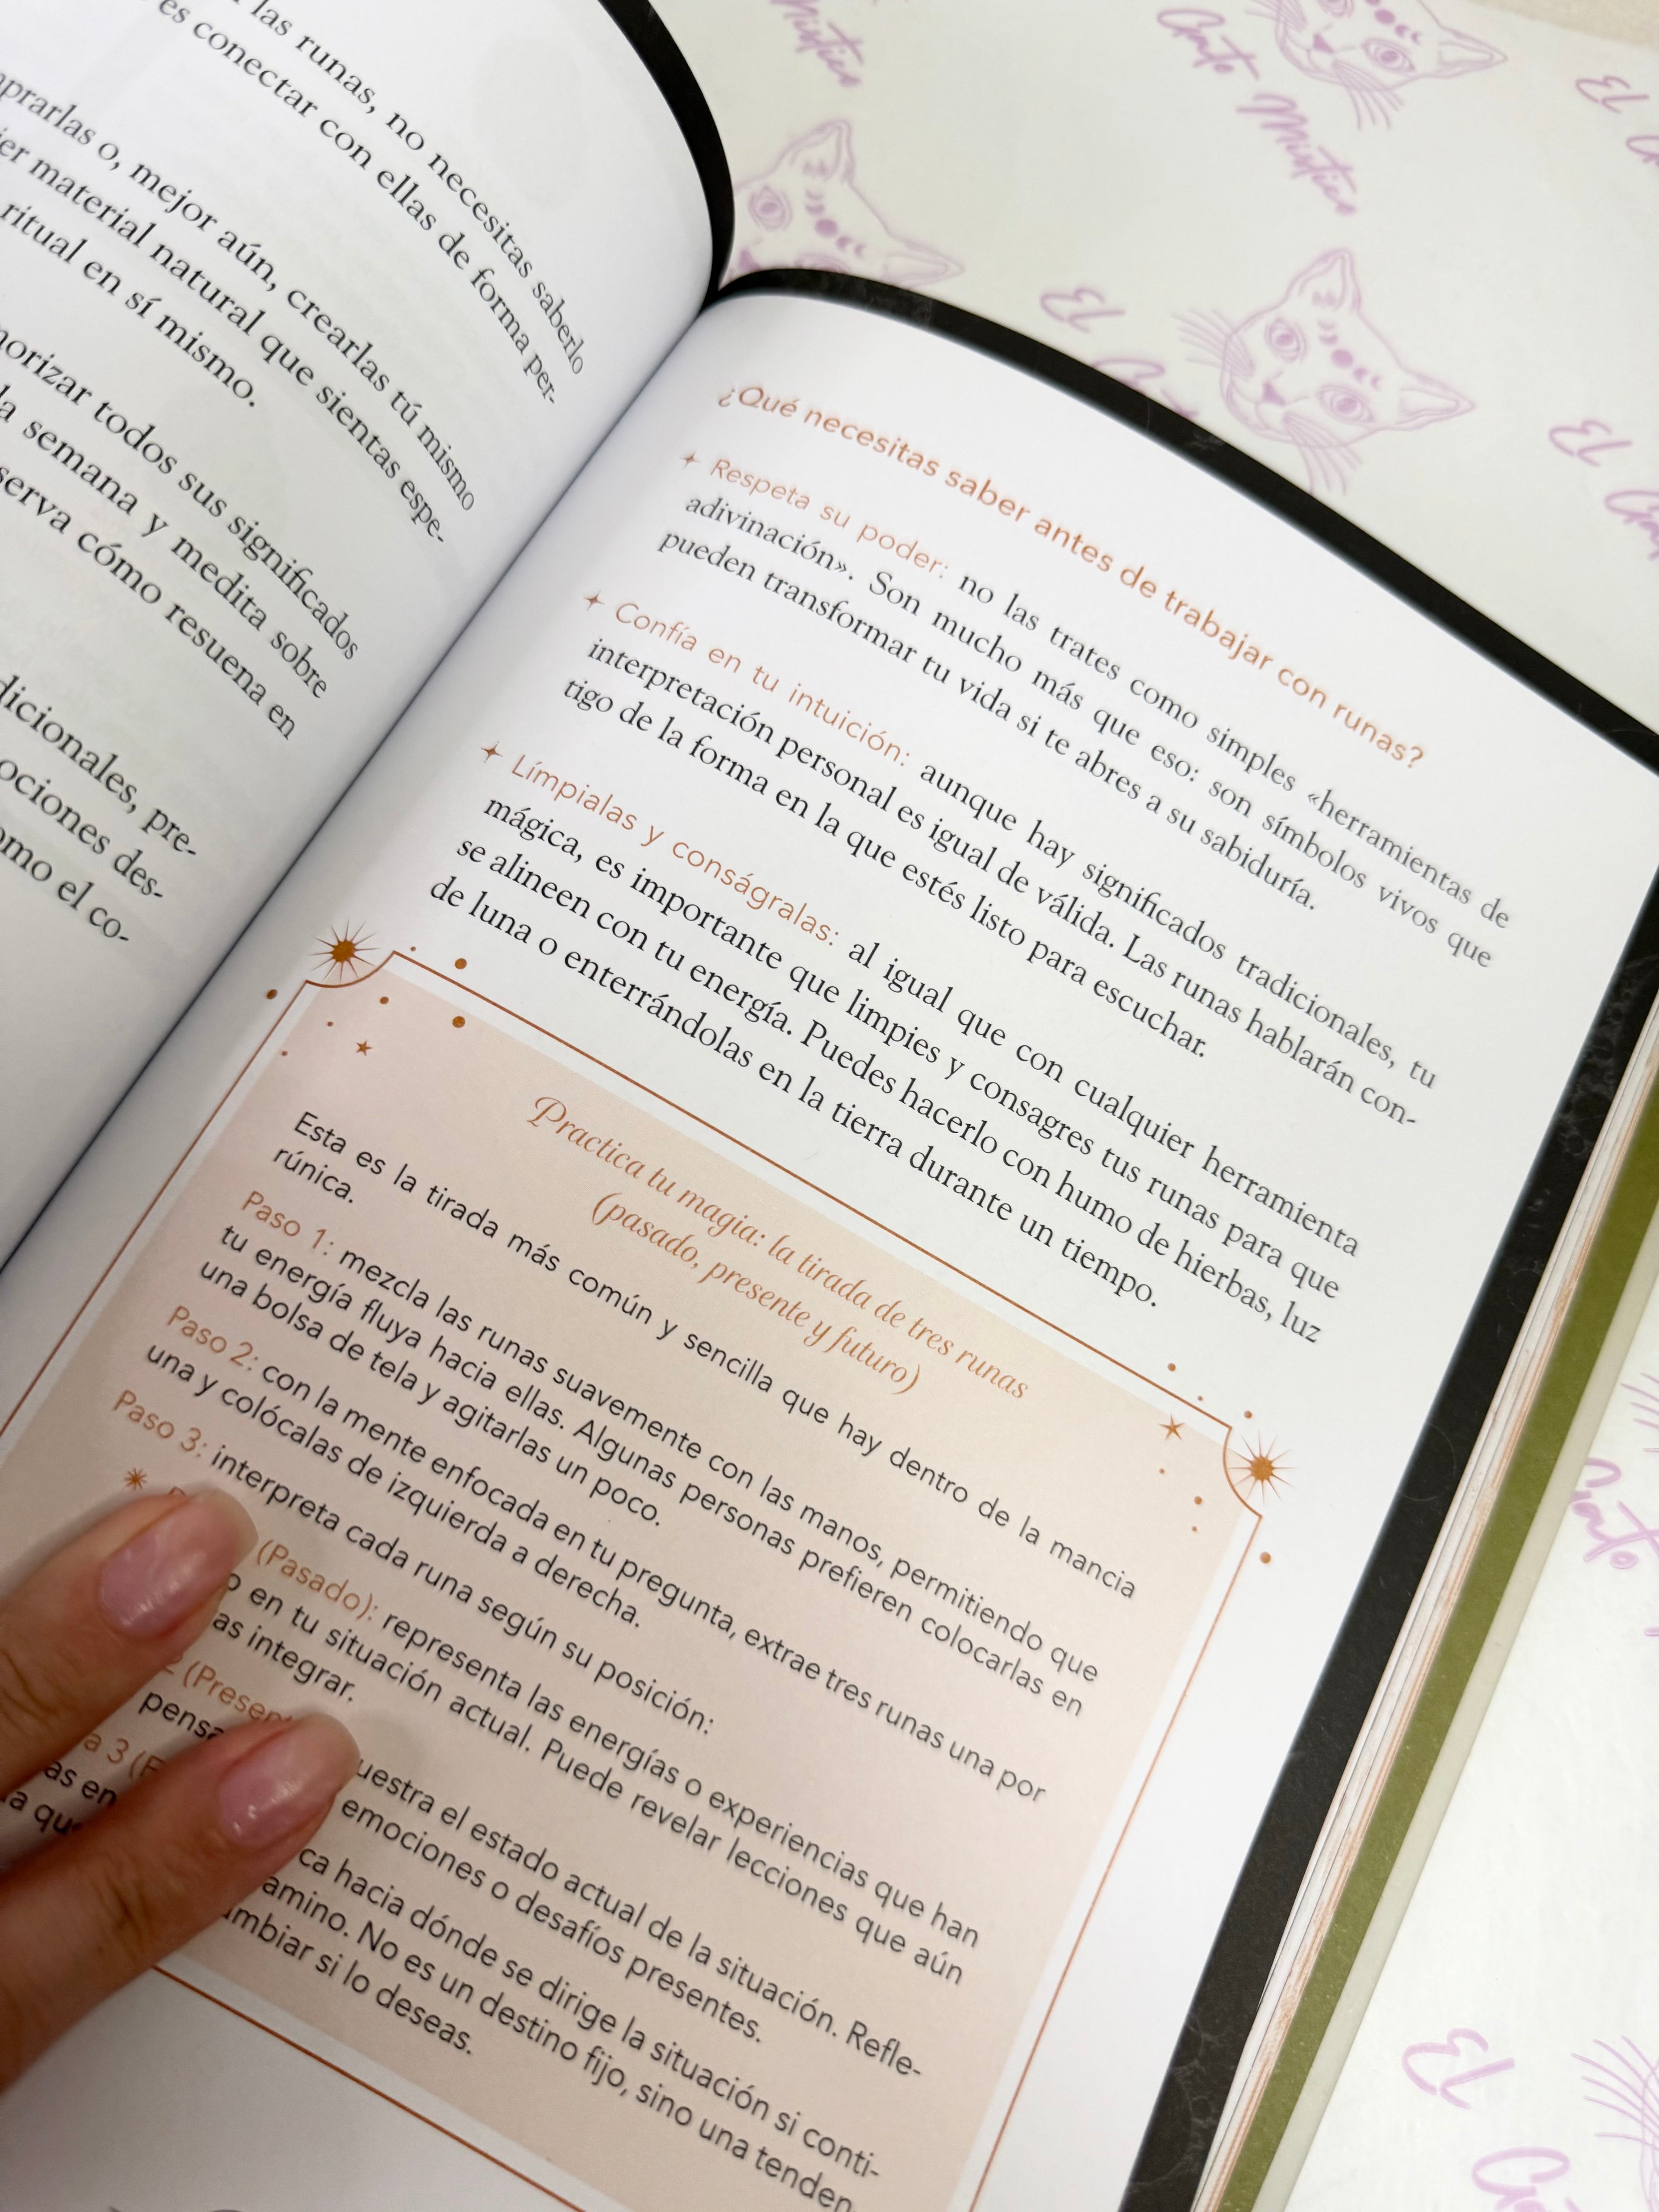 las runas, no necesitas saberlo
es conectar con ellas de forma per-
mprarlas o, mejor aún, crearlas tú mismo
material natural que sientas espe-
ritual en sí mismo.
todos sus significados
semana y medita sobre
cómo resuena en
pre-
ociones des-
omo el co-
¿Qué necesitas saber antes de trabajar con runas?
Respeta su poder: no las trates como simples «herramientas de
adivinación». Son mucho más que eso: son símbolos vivos que
pueden transformar tu vida si te abres a su sabiduría.
Confía en tu intuición: aunque hay significados tradicionales, tu
interpretación personal es igual de válida. Las runas hablarán con-
tigo de la forma en la que estés listo para escuchar.
Límpialas y conságralas: al igual que con cualquier herramienta
mágica, es importante que limpies y consagres tus runas para que
se alineen con tu energía. Puedes hacerlo con humo de hierbas, luz
de luna o enterrándolas en la tierra durante un tiempo.
Practica tu magia: la tirada de tres runas
(pasado, presente y futuro)
Esta es la tirada más común y sencilla que hay dentro de la mancia
rúnica.
Paso 1: mezcla las runas suavemente con las manos, permitiendo que
tu energía fluya hacia ellas. Algunas personas prefieren colocarlas en
una bolsa de tela y agitarlas un poco.
Paso 2: con la mente enfocada en tu pregunta, extrae tres runas una por
una y colócalas de izquierda a derecha.
Paso 3: interpreta cada runa según su posición:
(Pasado): representa las energías o experiencias que han
en tu situación actual. Puede revelar lecciones que aún
integrar.
2 (Presen
uestra el estado actual de la situación. Refle-
emociones o desafíos presentes.
a 3
ca hacia dónde se dirige la situación si conti-
as en
amino. No es un destino fijo, sino una tenden
a que
ambiar si lo deseas.
Místico
Gato Místico
El
El Gato
El
El
Gato
El
Gato